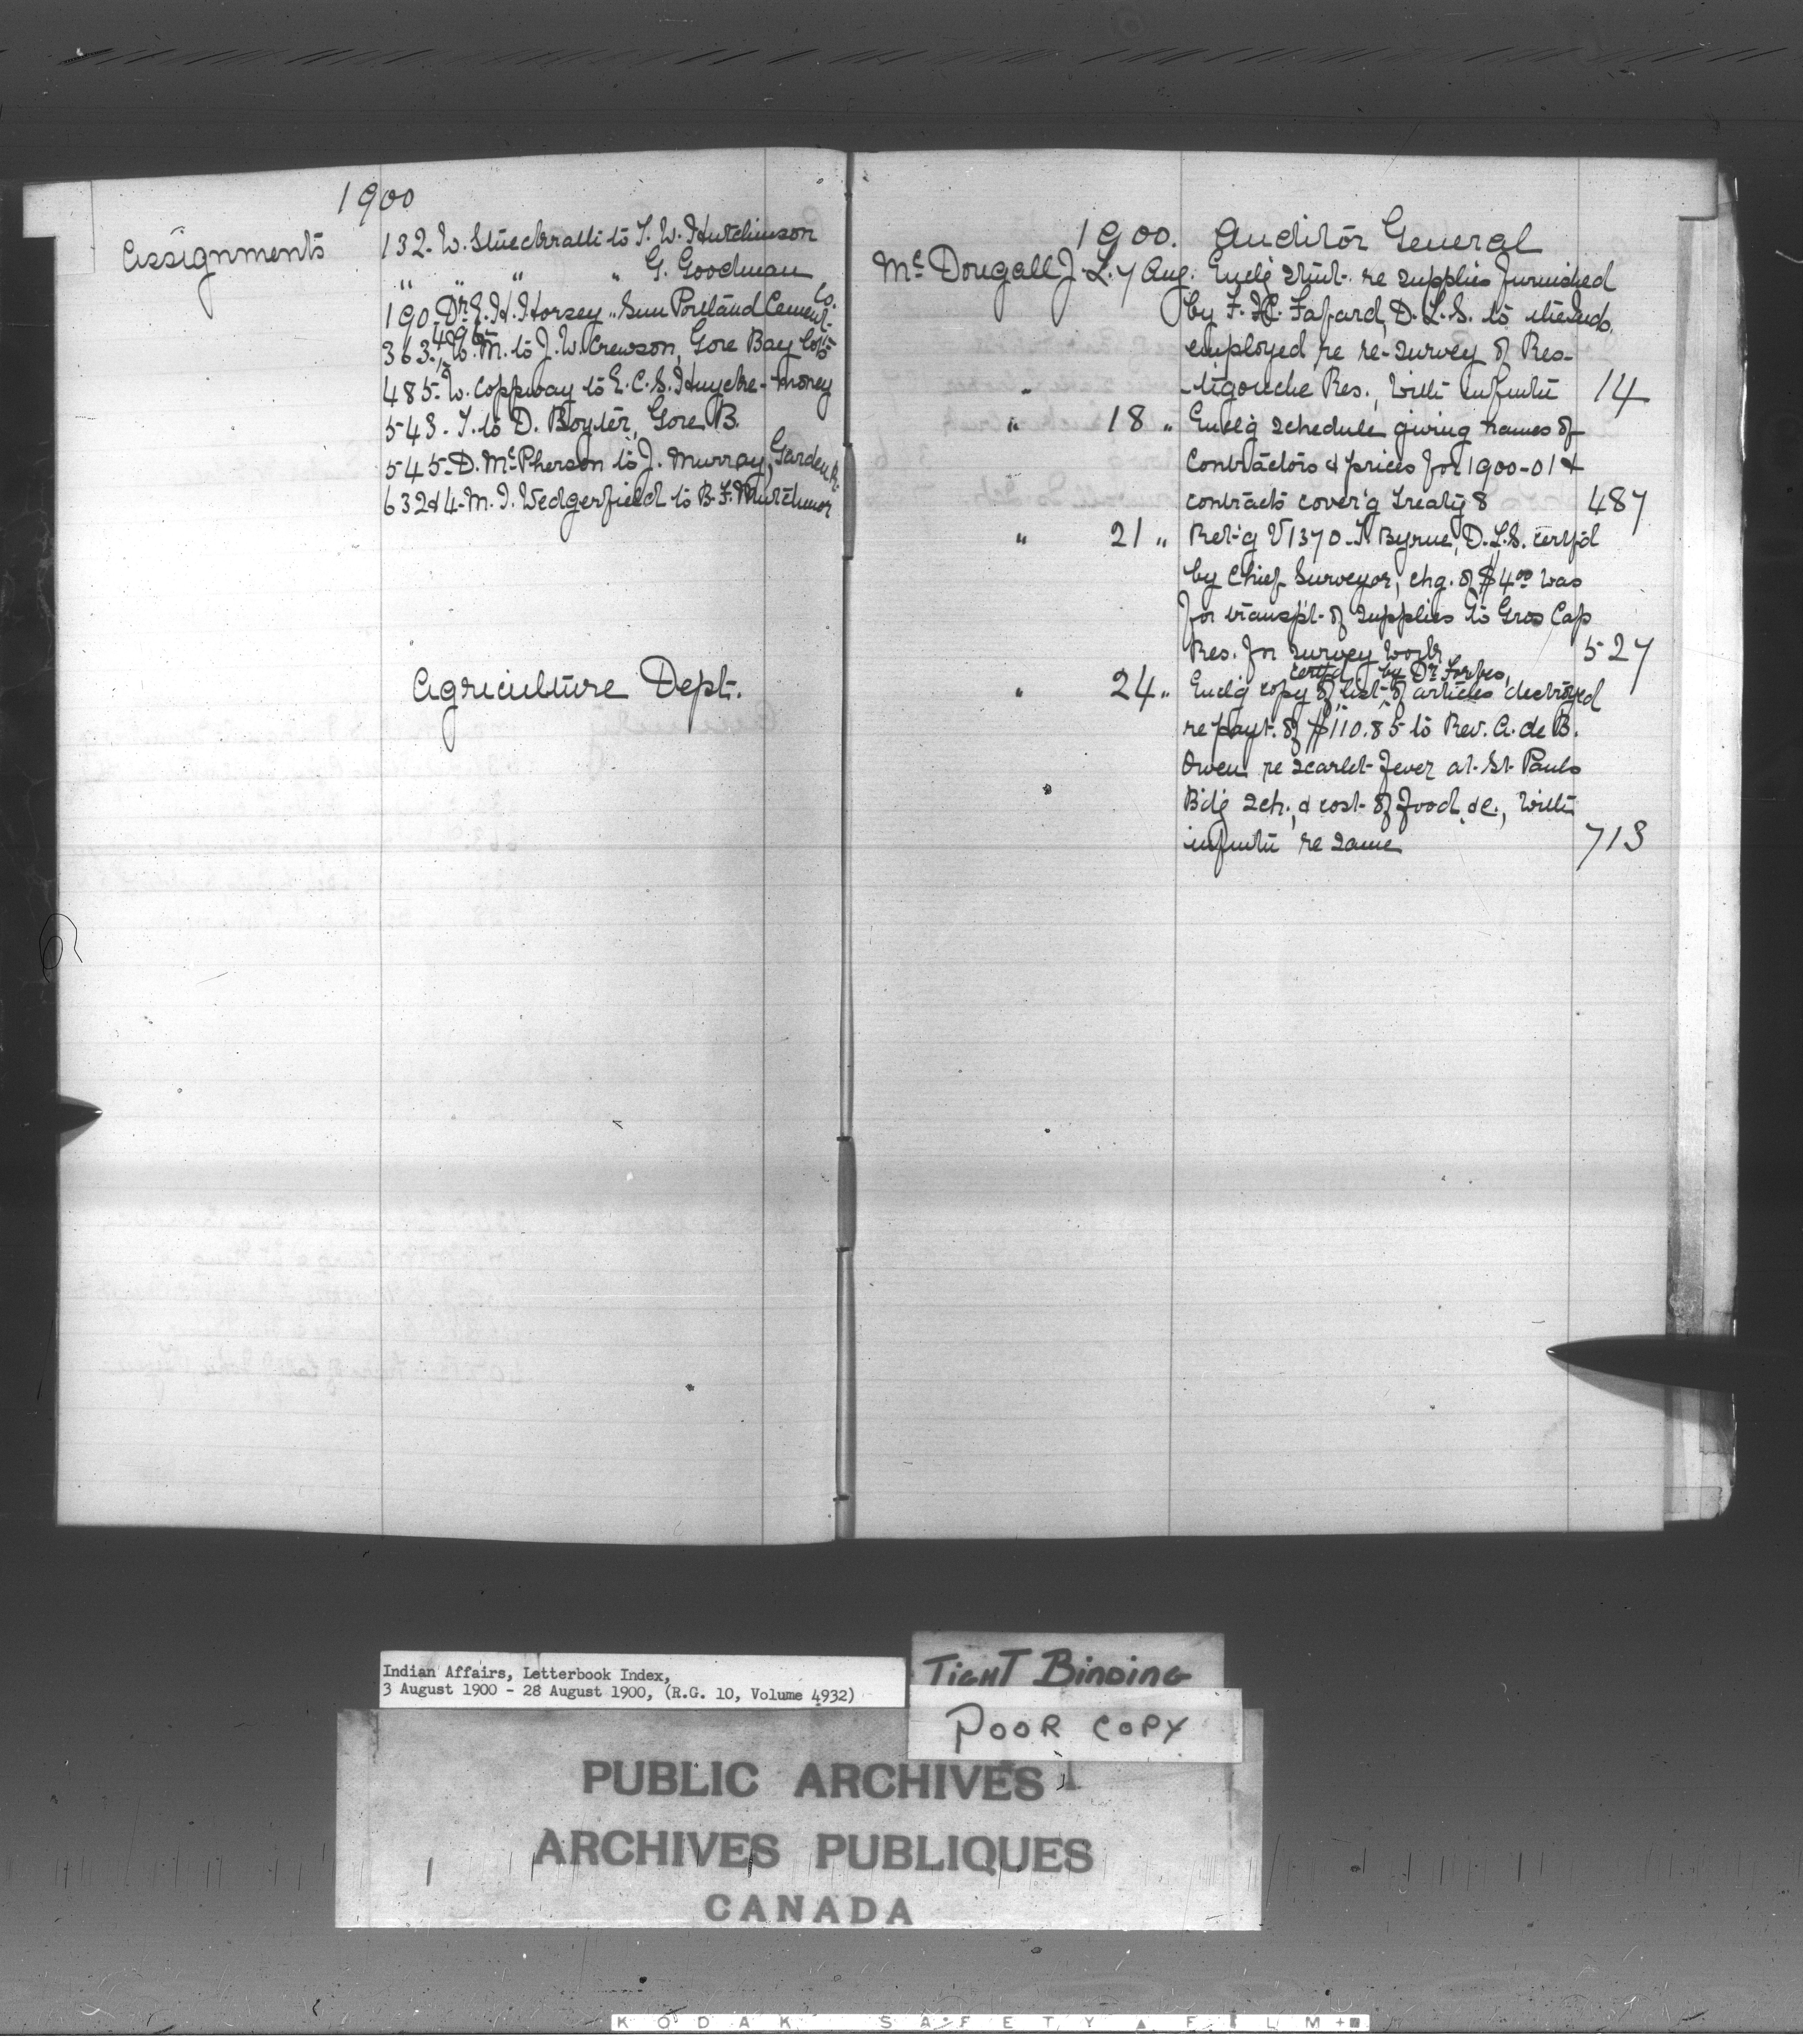 1900
Assignments
132- W. Stueckrath to T. W. Hutchinson
" " " " G. Goodman
190- Dr. E. H. Horsey " Sun Portland Cement Co.
363, 4 & 6- W. M. to J. W. Crewson, Gore Bay lots
485- W. Coppway to E. C. S. Huycke- money
543- T. to D. Boyter, Gore B.
545- D. McPherson to J. Murray, Garden R.
632 & 4- M. I. Wedgerfield to B. F. Mutchmor
Agriculture Dept.
1900. Auditor General
McDougall J. L. 7 Aug. Encl'g stmt. re supplies furnished
by F. X. Fafard, D. L. S. to the Inds.
employed re re-survey of Res-
" tigouche Res., with infmtn 14
" 18 " Encl'g schedule giving names of
contractors & prices for 1900-01 &
contracts cover'g Treaty 8 487
" 21 " Ret'g V 1370- T. Byrne, D.L.S. certf'd
by Chief Surveyor, chg. of $4.00 was
for transp't. of supplies to Gros Cap
Res. for survey work 527
certfd by Dr. Forbes,
" 24 " Encl'g copy of list of articles destroyed
re payt. of $110.85 to Rev. A. de B.
Owen re scarlet fever at St. Pauls
" B'd'g Sch., & cost of food &c., with
infmtn re same 713
Indian Affairs, Letterbook Index,
3 August 1900 - 28 August 1900, (R.G. 10, Volume 4932)
TIGHT BINDING
POOR COPY
PUBLIC ARCHIVES
ARCHIVES PUBLIQUES
CANADA
KODAK SAFETY FILM